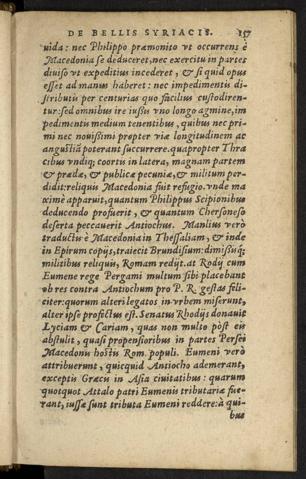 DE BELLIS SYRIACIS. 157
uida: nec Philippo præmonito vt occurrens è
Macedonia se deduceret, nec exercitu in partes
diuiso vt expeditius incederet, & si quid opus
esset ad manus haberet: nec impedimentis di-
stributis per centurias quo facilius custodiren-
tur: sed omnibus ire iussis vno longo agmine, im
pedimentis medium tenentibus, quibus nec pri-
mi nec nouissimi propter viæ longitudinem ac
angustiā poterant succurrere. quapropter Thra
cibus vndiq; coortis in latera, magnam partem
& prædæ, & publicæ pecuniæ, & militum per-
didit: reliquis Macedonia fuit refugio. vnde ma
ximè apparuit, quantum Philippus Scipionibus
deducendo profuerit, & quantum Chersoneso
deserta peccauerit Antiochus. Manlius verò
traductis è Macedonia in Thessaliam, & inde
in Epirum copijs, traiecit Brundisium: dimissisq;
militibus reliquis, Romam redijt. at Rodij cum
Eumene rege Pergami multum sibi placebant
ob res contra Antiochum pro P. R. gestas feli-
citer: quorum alteri legatos in vrbem miserunt,
alter ipse profectus est. Senatus Rhodijs donauit
Lyciam & Cariam, quas non multo pòst eis
abstulit, quasi propensioribus in partes Persei
Macedonis hostis Rom. populi. Eumeni verò
attribuerunt, quicquid Antiocho ademerant,
exceptis Græcis in Asia ciuitatibus: quarum
quotquot Attalo patri Eumenis tributariæ fue-
rant, iussæ sunt tributa Eumeni reddere: à qui-
bus